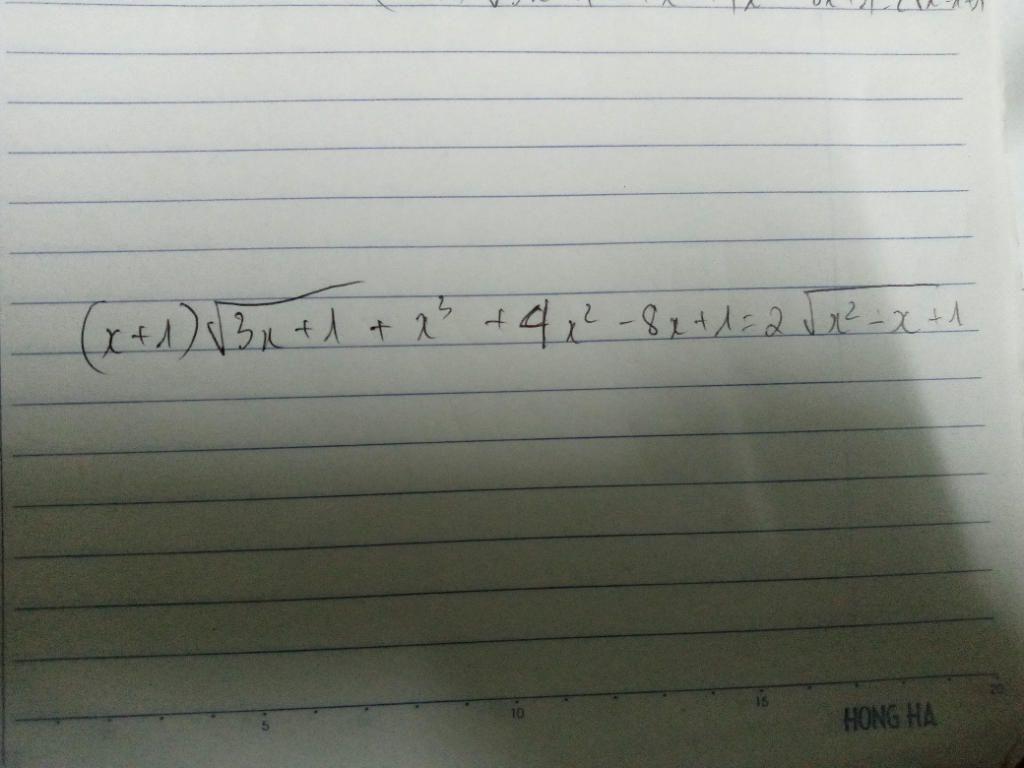 (x+1)√(3x+1) + x³ + 4x² - 8x + 1 = 2√(x² - x + 1)
5 10 15 20
HONG HA